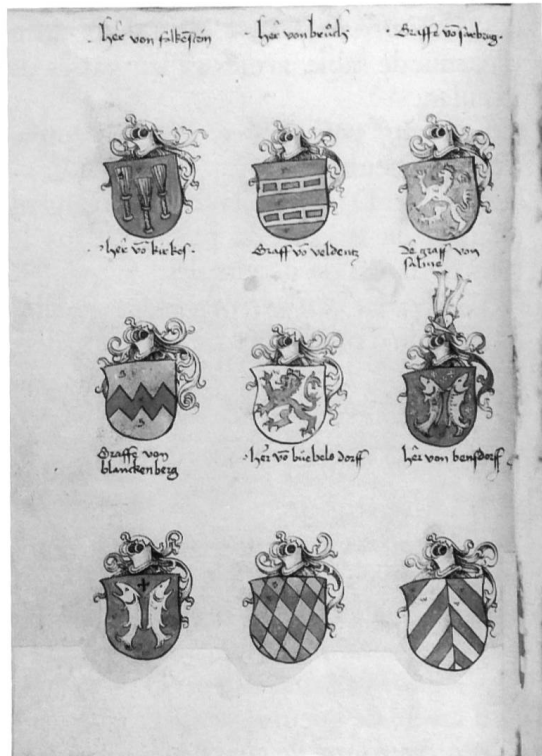 her von falkēstein
her von brůch
Graffe vō sarbrug
her vō kirkes
Graff vō veldentz
de graff von
salme
Graffe von
blanckenberg
her vō büebelo dorff
her von bensdorff